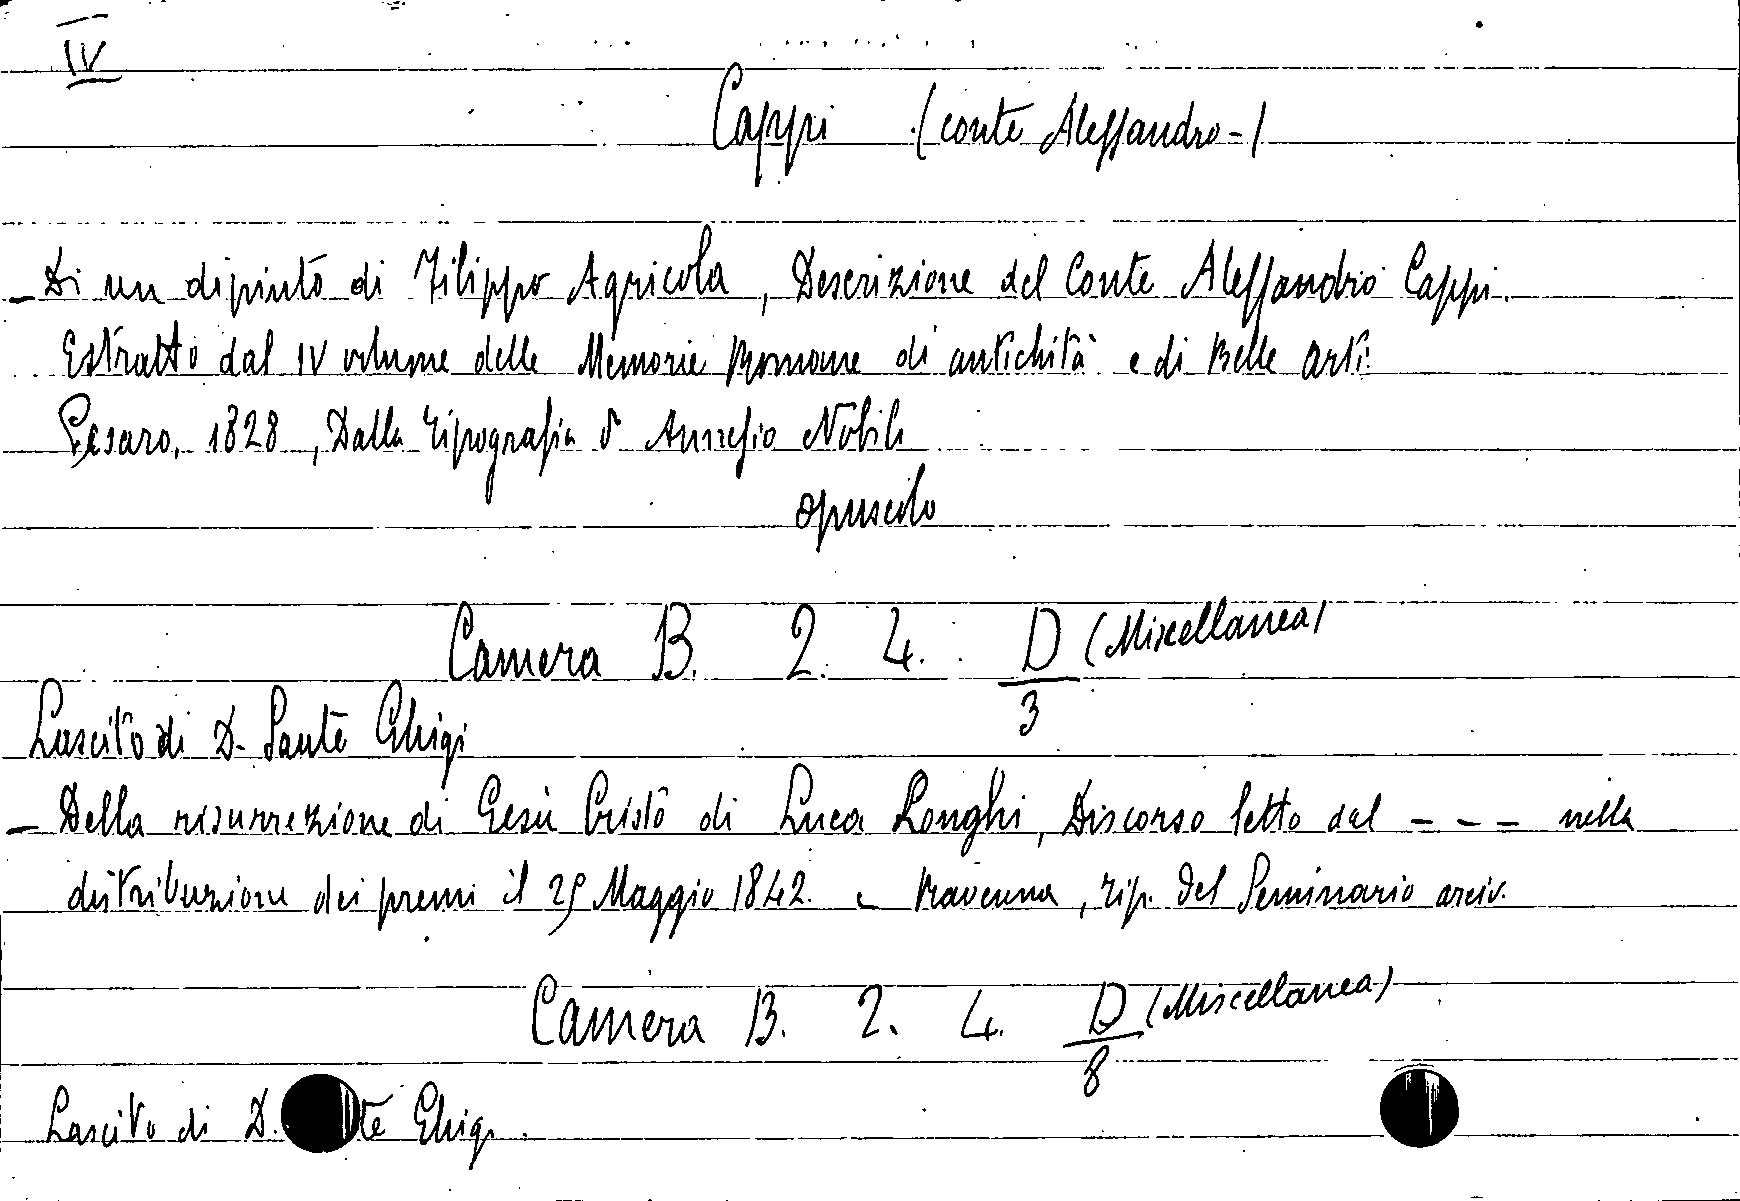 IV
Cappi (conte Alessandro-)
- Di un dipinto di Filippo Agricola, Descrizione del Conte Alessandro Cappi.
Estratto dal IV volume delle Memorie Romane di antichità e di Belle Arti.
Pesaro, 1828, Dalla Tipografia d' Annesio Nobili
opuscolo
Camera B. 2. 4. D (Miscellanea)
3
Lascito di D. Sante Ghigi
- Della risurrezione di Gesù Cristo di Luca Longhi, Discorso letto dal - - - nella
distribuzione dei premi il 29 Maggio 1842. - Ravenna, Tip. del Seminario arciv.
Camera B. 2. 4. D (Miscellanea)
8
Lascito di D. te Ghigi.